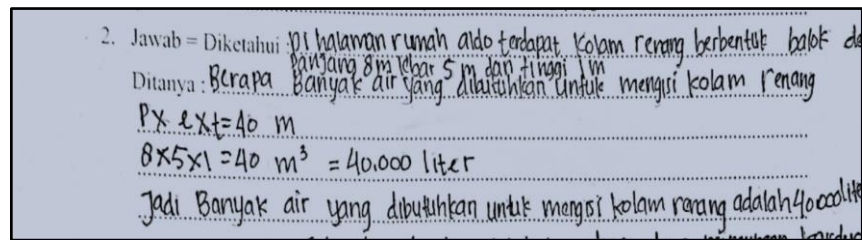 2. Jawab = Diketahui : Di halaman rumah aldo terdapat kolam renang berbentuk balok
panjang 8 m lebar 5 m dan tinggi 1 m
Ditanya : Berapa Banyak air yang dibutuhkan untuk mengisi kolam renang
P x l x t = 40 m
8 x 5 x 1 = 40 m³ = 40.000 liter
Jadi Banyak air yang dibutuhkan untuk mengisi kolam renang adalah 40000 lite